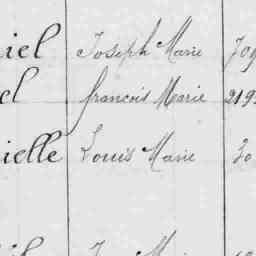 iel Joseph Marie
el francois Marie 219
ielle Louis Marie 30